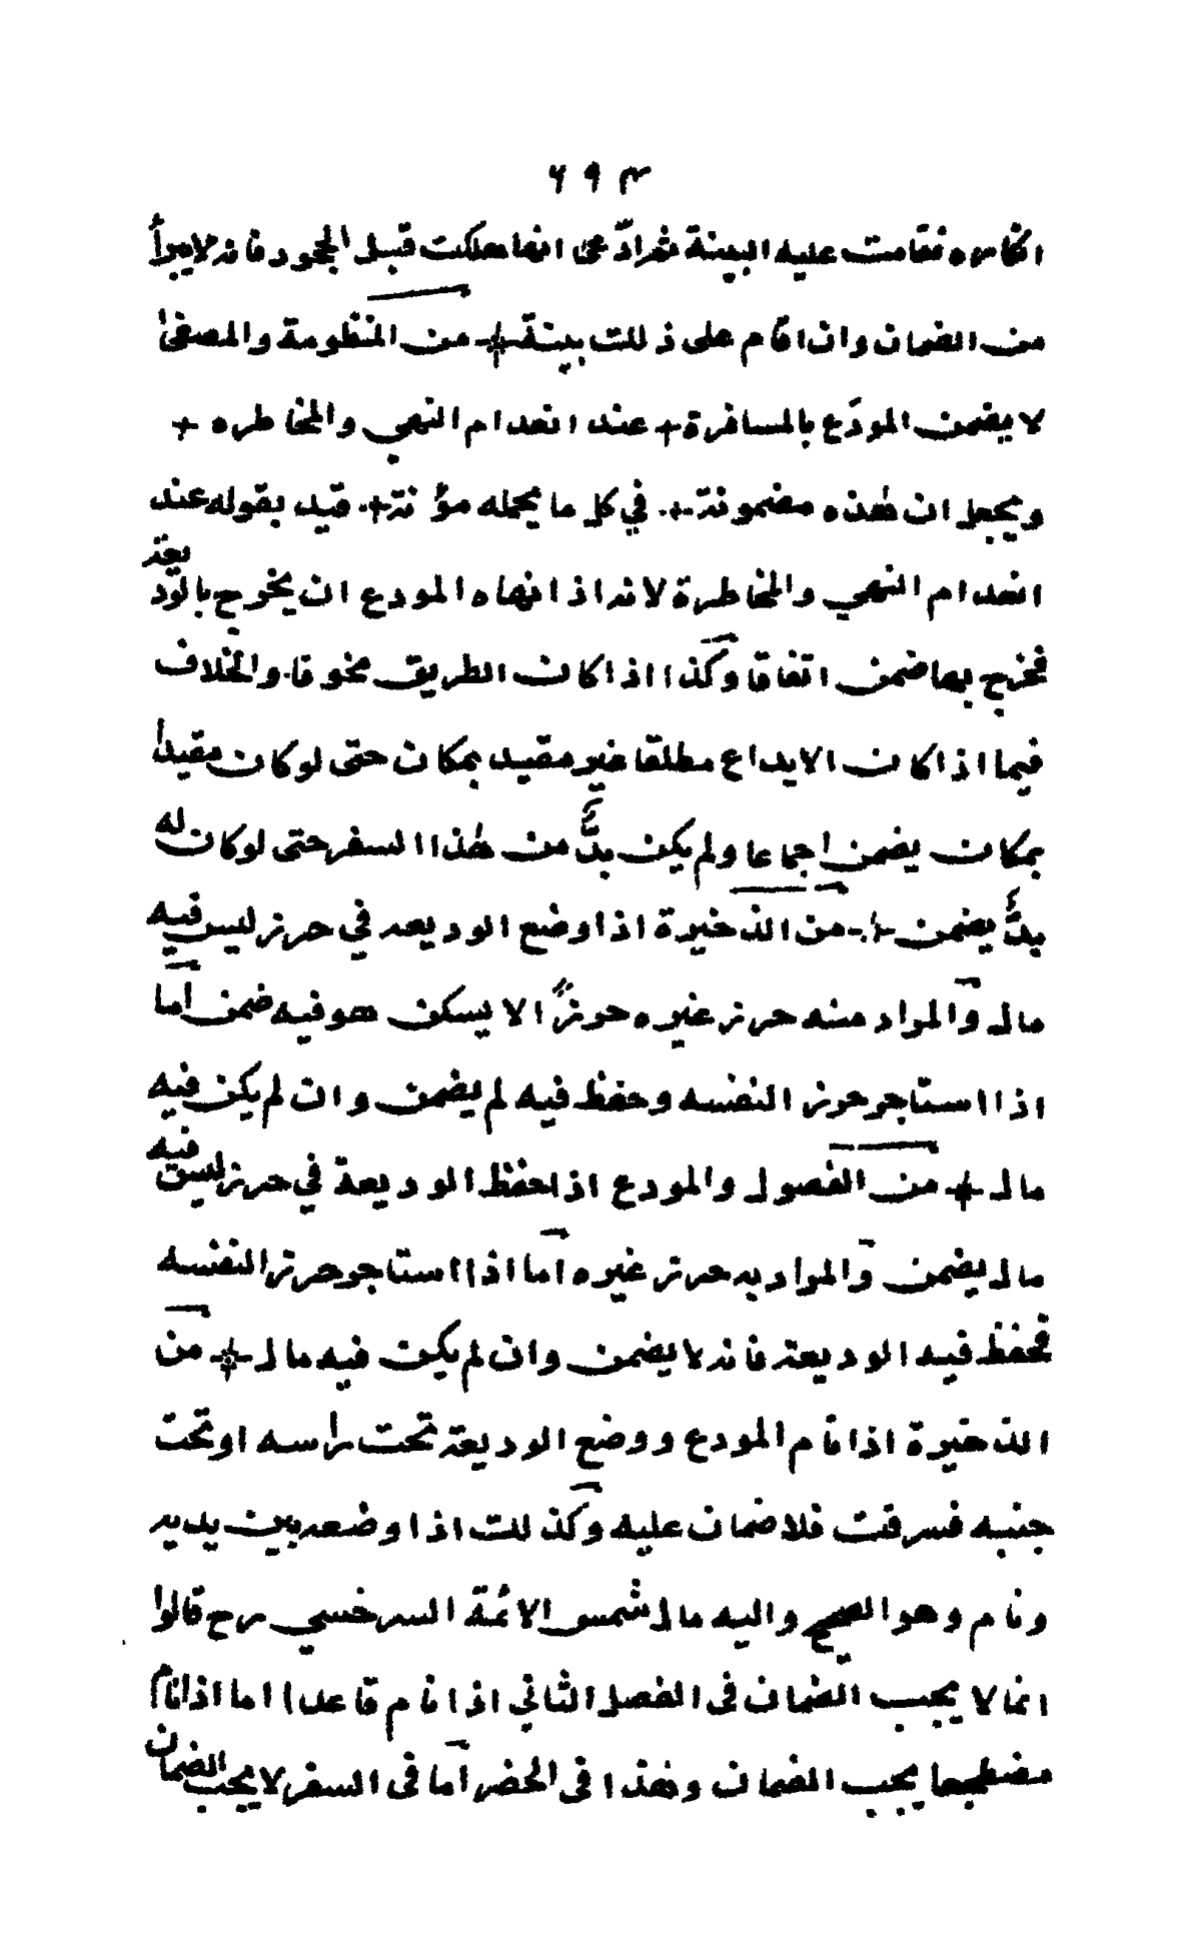 ٦٩٣
انكاره فقامت عليه البينة ثم ادّعى انها هلكت قبل الجحود فانه لا يبرأ
من الضمان وان اقام على ذلك بينة + من المنظومة والمصفىٰ
لا يضمن المودَع بالمسافرة + عند انعدام النهي والمخاطره +
ويجعل ان هٰذه مضمونة + في كل ما يحمله مؤنة + قيد بقوله عند
انعدام النهي والمخاطرة لانه اذا نهاه المودع ان يخرج بالوديعة
فخرج بها ضمن اتفاقا وكذا اذا كان الطريق مخوفا والخلاف
فيما اذا كان الايداع مطلقا غير مقيد بمكان حتى لو كان مقيداً
بمكان يضمن اجماعا ولم يكن بدٌّ من هٰذا السفر حتى لو كان له
بدٌّ يضمن + من الذخيرة اذا وضع الوديعه في حرز ليس فيه
ماله والمراد منه حرز غيره حرزاً لا يسكن هو فيه ضمن اما
اذا استاجر حرز النفسه وحفظ فيه لم يضمن وان لم يكن فيه
ماله + من الفصول والمودع اذا حفظ الوديعة في حرز ليس فيه
ماله يضمن والمراد به حرز غيره اما اذا استاجر حرز النفسه
فحفظ فيه الوديعة فانه لا يضمن وان لم يكن فيه ماله + من
الذخيرة اذا نام المودع ووضع الوديعة تحت راسه او تحت
جنبه فسرقت فلا ضمان عليه وكذلك اذا وضعه بين يديه
ونام وهو الصحيح واليه مال شمس الائمة السرخسي رح قالوا
انما لا يجب الضمان فى الفصل الثاني اذا نام قاعدا اما اذا نام
مضطجعا يجب الضمان وهٰذا فى الحضر اما فى السفر لا يجب الضمان